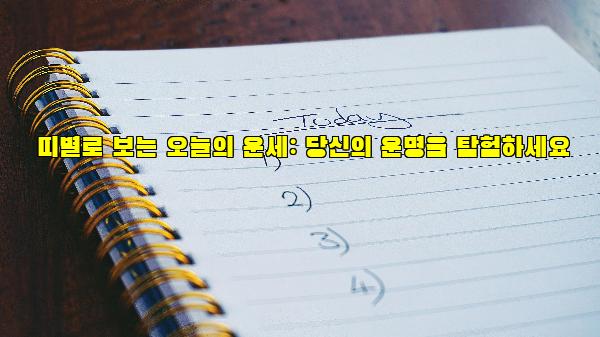 Today
띠별로 보는 오늘의 운세: 당신의 운명을 탐험하세요
1)
2)
3)
4)